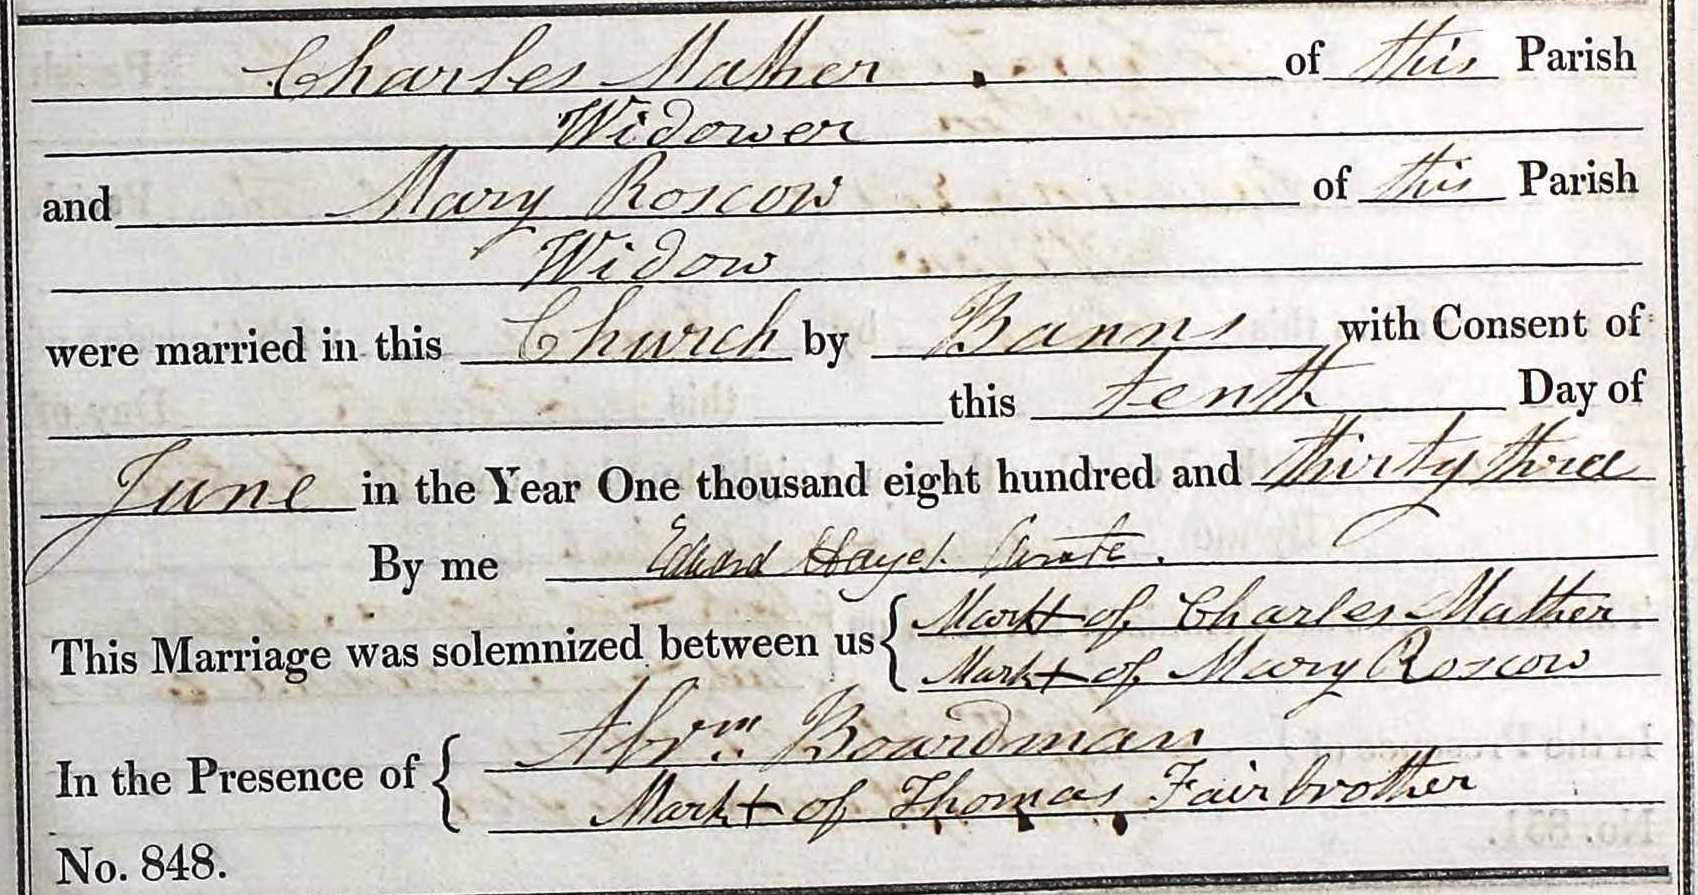 Charles Mather of this Parish
Widower
and Mary Roscow of this Parish
Widow
were married in this Church by Banns with Consent of
this tenth Day of
June in the Year One thousand eight hundred and thirty three
By me Edward Hayes. Curate.
This Marriage was solemnized between us { Mark + of Charles Mather
Mark + of Mary Roscow
In the Presence of { Abrm. Boardman
Mark + of Thomas Fairbrother
No. 848.